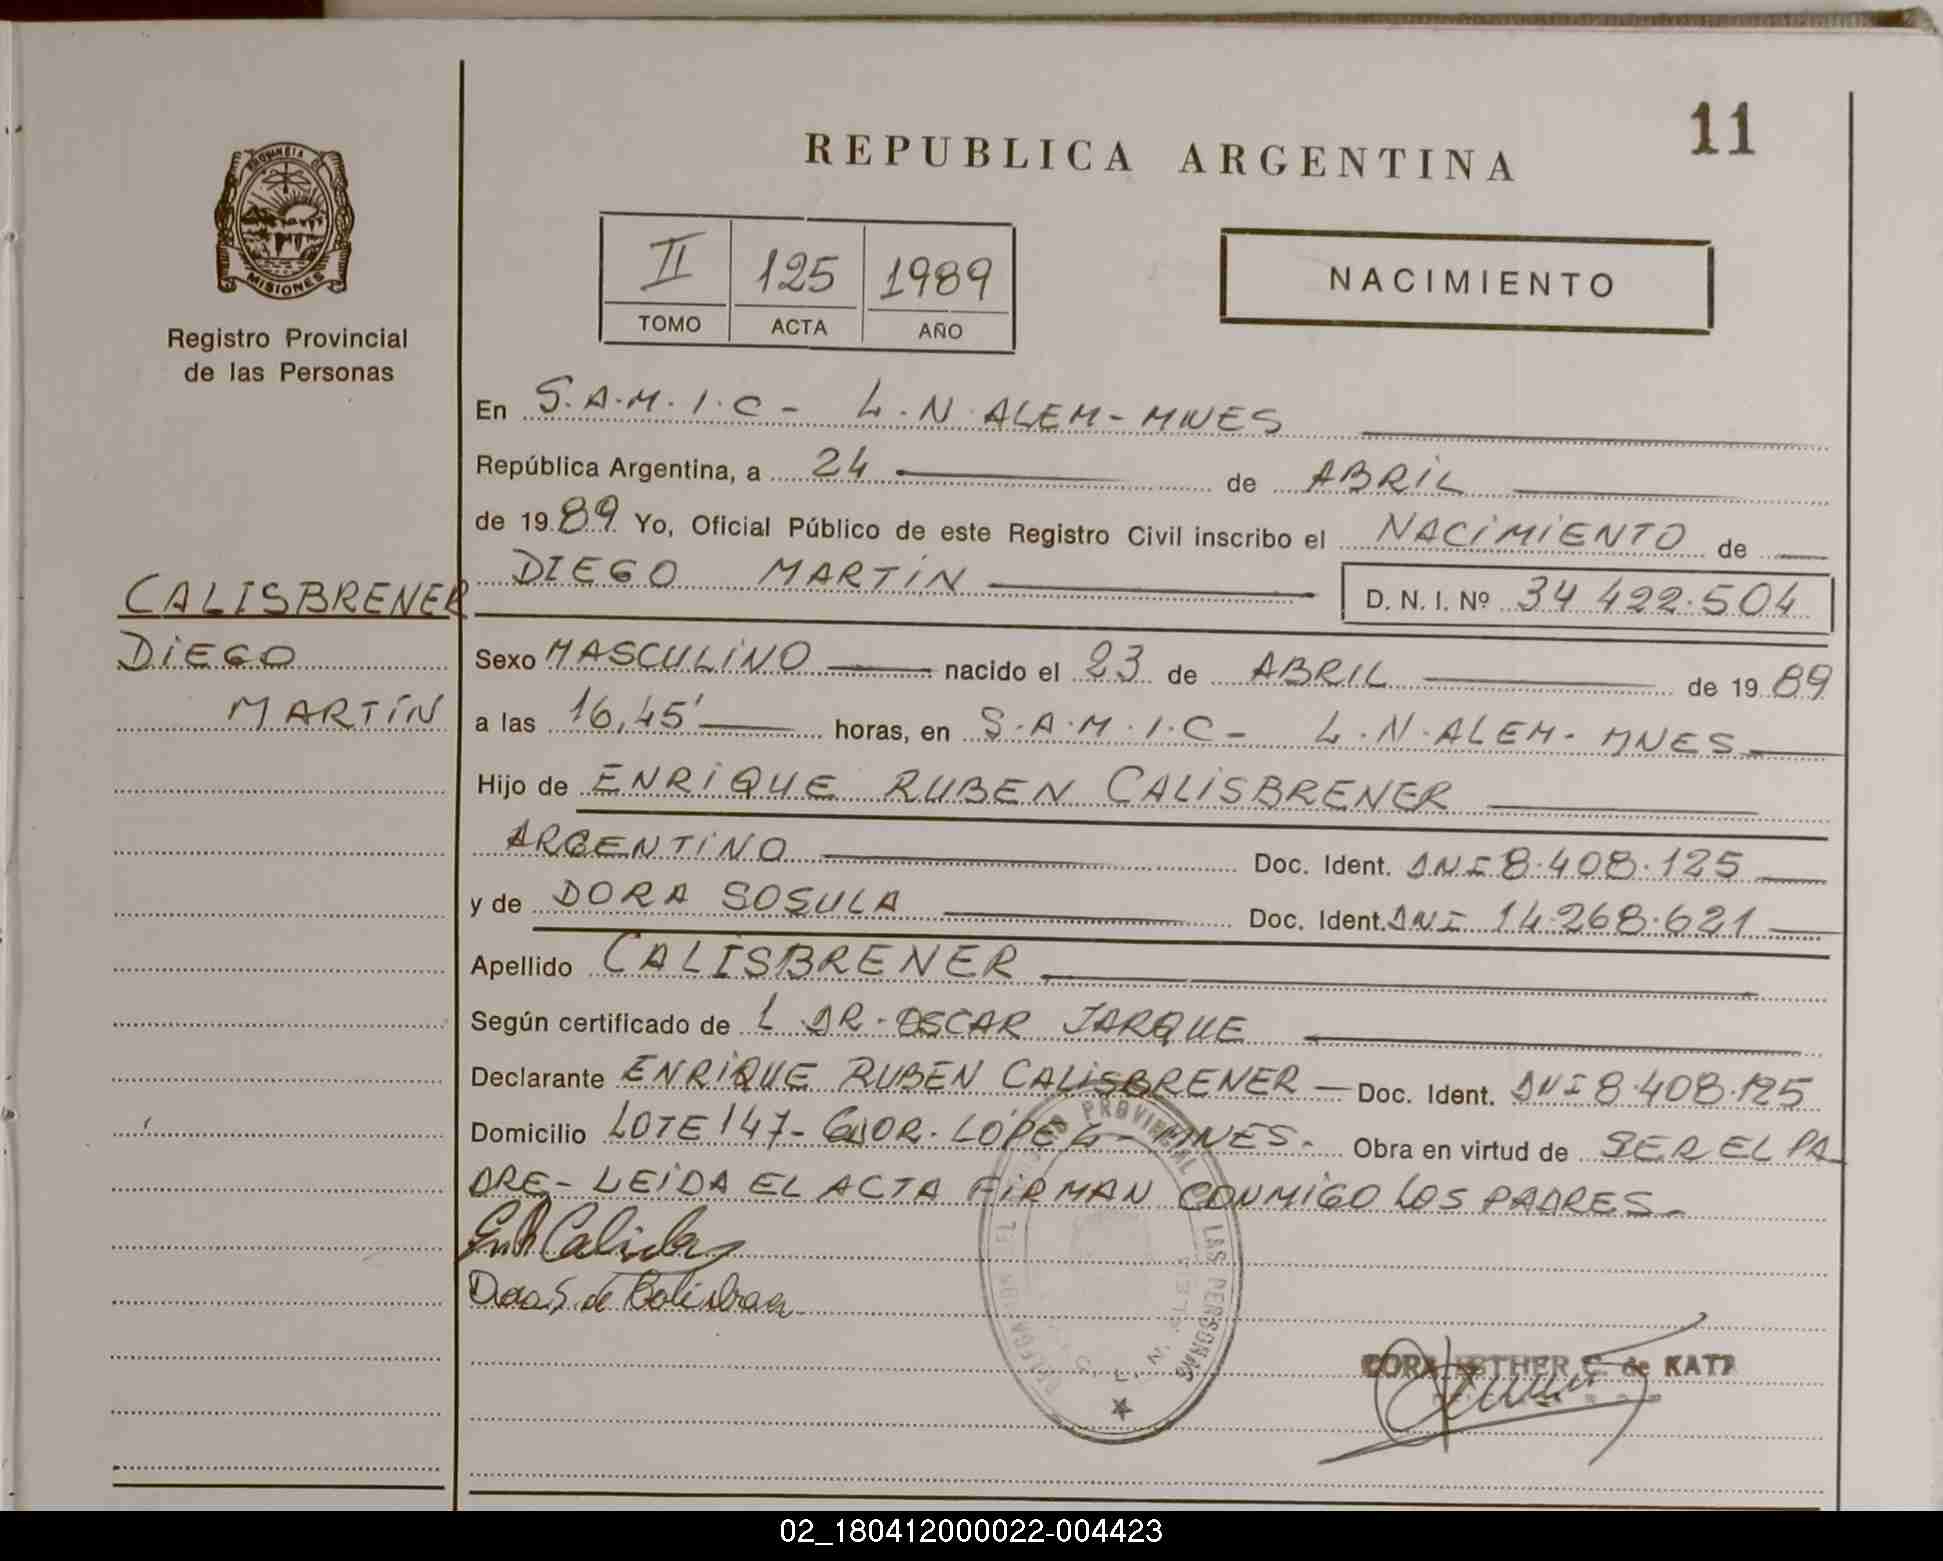 11
REPUBLICA ARGENTINA
PROVINCIA DE
MISIONES
Registro Provincial
de las Personas
II 125 1989
TOMO ACTA AÑO
NACIMIENTO
En S.A.M.I.C - L.N.ALEM-MNES
República Argentina, a 24 de ABRIL
de 1989 Yo, Oficial Público de este Registro Civil inscribo el NACIMIENTO de
DIEGO MARTÍN D. N. I. Nº 34 422.504
CALISBRENER
DIEGO
MARTÍN
Sexo MASCULINO nacido el 23 de ABRIL de 1989
a las 16,45' horas, en S.A.M.I.C - L.N.ALEM- MNES
Hijo de ENRIQUE RUBEN CALISBRENER
ARGENTINO Doc. Ident. DNI 8.408.125
y de DORA SOSULA Doc. Ident. DNI 14.268.621
Apellido CALISBRENER
Según certificado de L DR. OSCAR JARQUE
Declarante ENRIQUE RUBEN CALISBRENER - Doc. Ident. DNI 8.408.125
Domicilio LOTE 147- GDOR. LÓPEZ - MNES. Obra en virtud de SER EL PA
DRE- LEIDA EL ACTA FIRMAN CONMIGO LOS PADRES-
PROVINCIAL
LAS PERSONAS
L. N. ALEM
ESTHER C. de KATZ
02_180412000022-004423